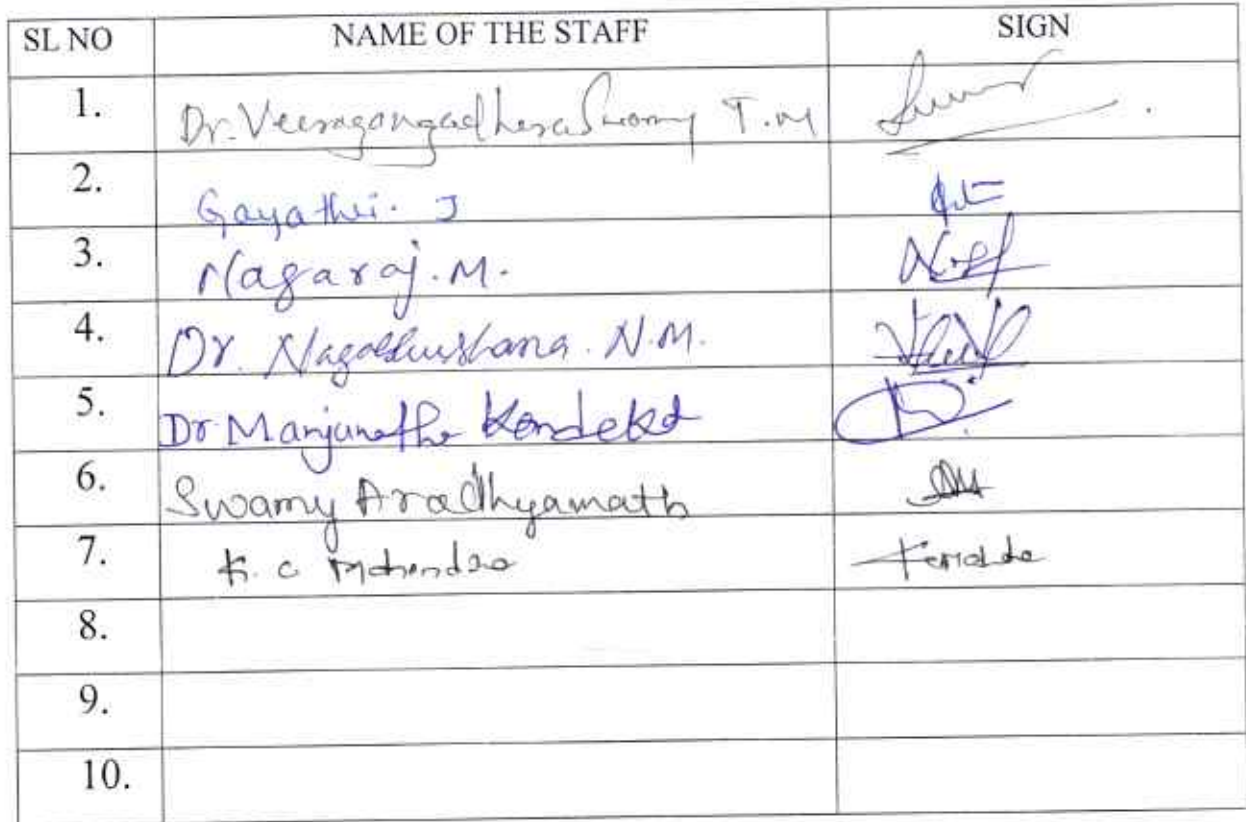 SL NO NAME OF THE STAFF SIGN
1. Dr. Veeragangadhara Swamy T.M
2. Gayathri. J
3. Nagaraj. M.
4. Dr. Nagabhushana. N.M.
5. Dr Manjunatha
6. Swamy Aradhyamath
7. K. C Mahendra
8.
9.
10.